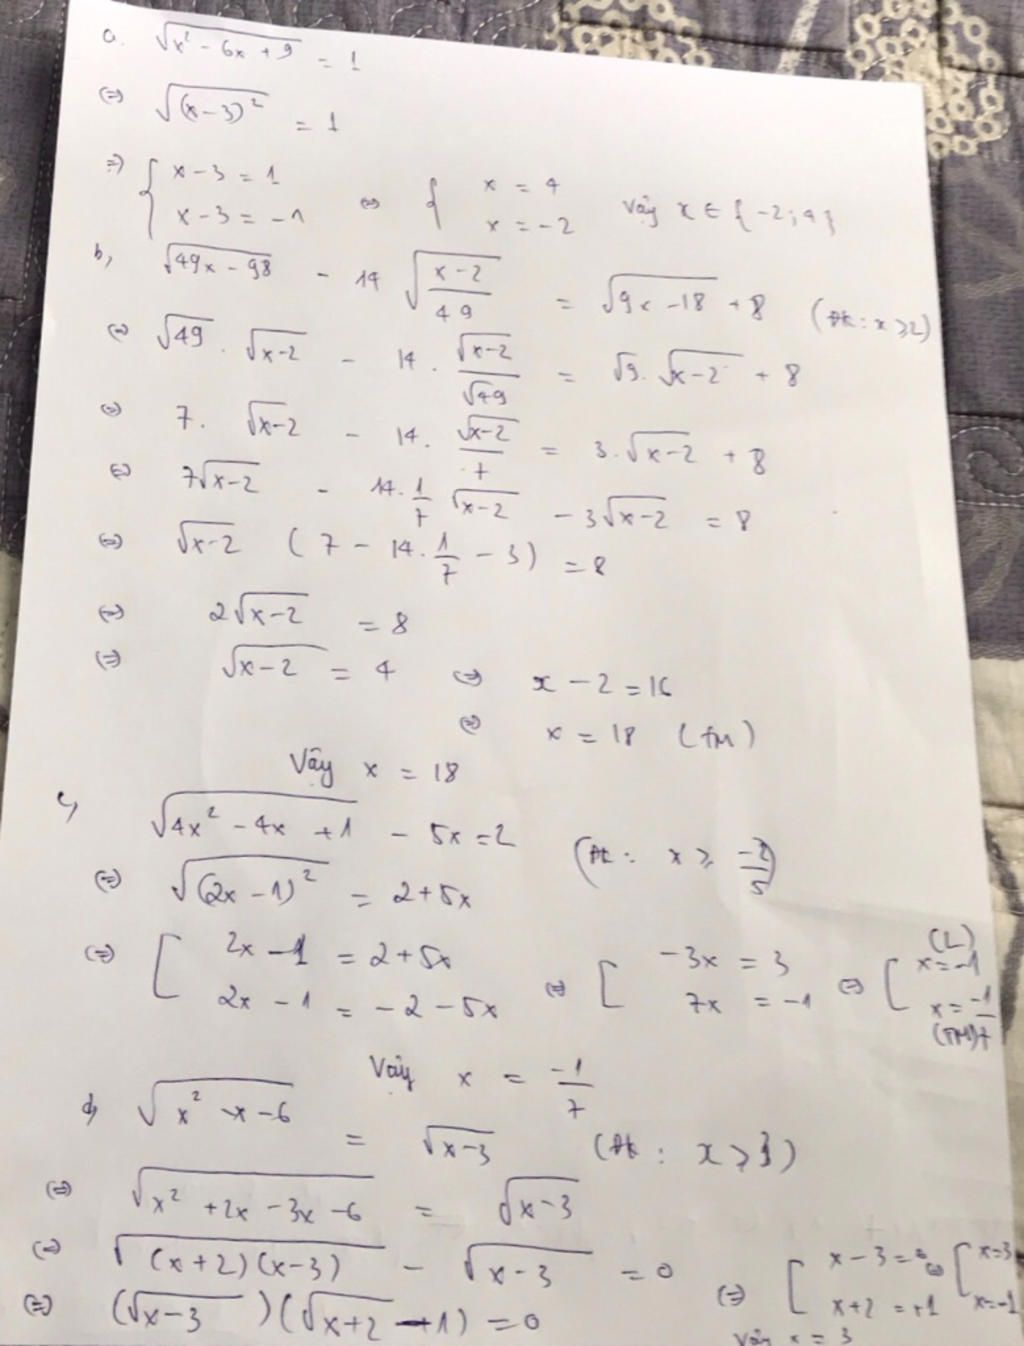 a. √(x² - 6x + 9) = 1
(=) √((x-3)²) = 1
=) { x - 3 = 1 ; x - 3 = -1 (=) { x = 4 ; x = -2 Vậy x ∈ {-2; 4}
b, √(49x - 98) - 14 √((x-2)/49) = √(9x - 18) + 8 (Đk: x ≥ 2)
(=) √49 . √(x-2) - 14 . √(x-2)/√49 = √9 . √(x-2) + 8
(=) 7 . √(x-2) - 14 . √(x-2)/7 = 3 . √(x-2) + 8
(=) 7√(x-2) - 14 . 1/7 √(x-2) - 3√(x-2) = 8
(=) √(x-2) (7 - 14 . 1/7 - 3) = 8
(=) 2√(x-2) = 8
(=) √(x-2) = 4 (=) x - 2 = 16
(=) x = 18 (TM)
Vậy x = 18
c, √(4x² - 4x + 1) - 5x = 2 (Đk: x ≥ -2/5)
(=) √((2x - 1)²) = 2 + 5x
(=) [ 2x - 1 = 2 + 5x ; 2x - 1 = -2 - 5x (=) [ -3x = 3 ; 7x = -1 (=) [ x = -1 (L) ; x = -1/7 (TM)
Vậy x = -1/7
d, √(x² - x - 6) = √(x-3) (Đk: x ≥ 3)
(=) √(x² + 2x - 3x - 6) = √(x-3)
(=) √((x+2)(x-3)) - √(x-3) = 0
(=) (√(x-3))(√(x+2) - 1) = 0 (=) [ x - 3 = 0 ; x + 2 = +1 (=) [ x = 3 ; x = -1
Vậy x = 3